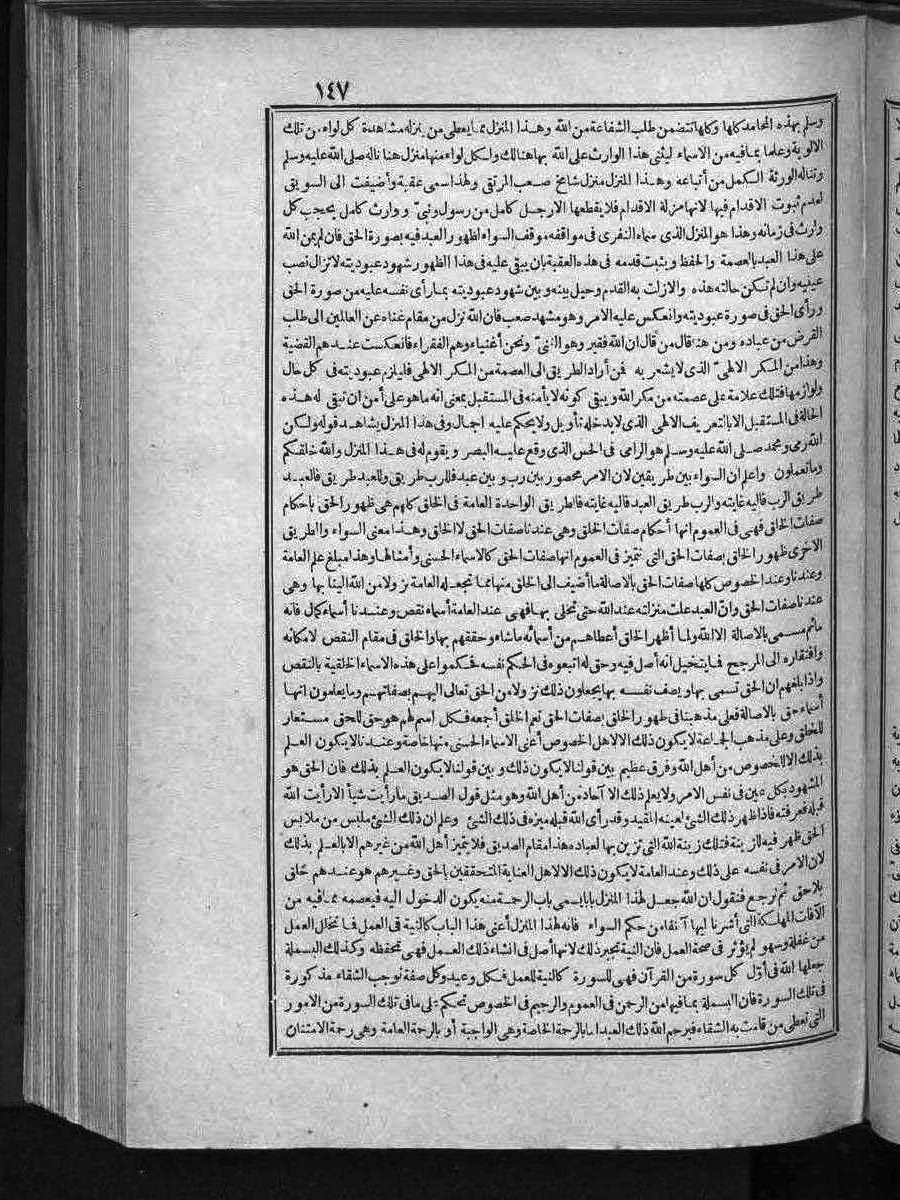 ١٤٧
وسلم بهذه المحامد كلها وكلها تتضمن طلب الشفاعة من الله وهذا المنزل مما يعطى من ينزله مشاهدة كل لواء من تلك
الالوية وعلما بما فيه من الاسماء ليثنى هذا الوارث على الله بها هنالك ولكل لواء منها منزل هنا ناله صلى الله عليه وسلم
وتناله الورثة الكمل من أتباعه وهذا المنزل منزل شامخ صعب المرتقى ولهذا سمى عقبة وأضيفت الى السويق
لعدم ثبوت الاقدام فيها لانها مزلة الاقدام فلا يقطعها الارجل كامل من رسول ونبى ووارث كامل يحجب كل
وارث فى زمانه وهذا هو المنزل الذى سماه النفرى فى مواقفه موقف السواء لظهور العبد فيه بصورة الحق فان لم يمن الله
على هذا العبد بالعصمة والحفظ ويثبت قدمه فى هذه العقبة بان يبقى عليه فى هذا الظهور شهود عبوديته لا تزال نصب
عينيه وان لم تكن حالته هذه والازلت به القدم وحيل بينه وبين شهود عبوديته بما رأى نفسه عليه من صورة الحق
ورأى الحق فى صورة عبوديته وانعكس عليه الامر وهو مشهد صعب فان الله نزل من مقام غناه عن العالمين الى طلب
القرض من عباده ومن هنا قال من قال ان الله فقير وهو الغنى ونحن أغنياء وهم الفقراء فانعكست عندهم القضية
وهذا من المكر الالهى الذى لا يشعر به فمن أراد الطريق الى العصمة من المكر الالهى فليلزم عبوديته فى كل حال
ولوازمها فتلك علامة على عصمته من مكر الله ويبقى كونه لا يأمنه فى المستقبل بمعنى انه ما هو على أمن ان تبقى له هذه
الحالة فى المستقبل الا بالتعريف الالهى الذى لا يدخله تأويل ولا يحكم عليه اجمال وفى هذا المنزل يشاهد قوله ولكن
الله رمى ومحمد صلى الله عليه وسلم هو الرامى فى الحس الذى وقع عليه البصر ويقوم له فى هذا المنزل والله خلقكم
وما تعملون واعلم ان السواء بين طريقين لان الامر محصور بين رب وبين عبد فللرب طريق وللعبد طريق فالعبد
طريق الرب فاليه غايته والرب طريق العبد فاليه غايته فالطريق الواحدة العامة فى الخلق كلهم هى ظهور الحق باحكام
صفات الخلق فهى فى العموم انها أحكام صفات الخلق وهى عندنا صفات الحق لا الخلق وهذا معنى السواء والطريق
الاخرى ظهور الخلق بصفات الحق التى تتميز فى العموم انها صفات الحق كالاسماء الحسنى وأمثالها وهذا مبلغ علم العامة
وعندنا وعند الخصوص كلها صفات الحق بالاصالة ما أضيف الى الخلق منها مما تجعله العامة نزولا من الله الينا بها وهى
عندنا صفات الحق وان العبد علت منزلته عند الله حتى تحلى بها فهى عند العامة أسماء نقص وعندنا أسماء كمال فانه
ما ثم مسمى بالاصالة الا الله ولما أظهر الخلق أعطاهم من أسمائه ما شاء وحققهم بها والخلق فى مقام النقص لامكانه
وافتقاره الى المرجح فما يتخيل انه أصل فيه وحق له اتبعوه فى الحكم نفسه فحكموا على هذه الاسماء الخلقية بالنقص
واذا بلغهم ان الحق تسمى بها ويصف نفسه بها يجعلون ذلك نزولا من الحق تعالى اليهم بصفاتهم وما يعلمون انها
أسماء حق بالاصالة فعلى مذهبنا فى ظهور الخلق بصفات الحق تعم الخلق أجمعه فكل اسم لهم هو حق للحق مستعار
للخلق وعلى مذهب الجماعة لا يكون ذلك الا لاهل الخصوص أعنى الاسماء الحسنى منها خاصة وعندنا لا يكون العلم
بذلك الا للخصوص من أهل الله وفرق عظيم بين قولنا لا يكون ذلك وبين قولنا لا يكون العلم بذلك فان الحق هو
المشهود بكل عين فى نفس الامر ولا يعلم ذلك الا آحاد من أهل الله وهو مثل قول الصديق ما رأيت شيأ الا رأيت الله
قبله فعرفته فاذا ظهر ذلك الشئ لعينه المقيد وقد رأى الله قبله ميزه فى ذلك الشئ وعلم ان ذلك الشئ ملبس من ملابس
الحق ظهر فيه للزينة فتلك زينة الله التى تزين بها لعباده هذا مقام الصديق فلا يتميز أهل الله من غيرهم الا بالعلم بذلك
لان الامر فى نفسه على ذلك وعند العامة لا يكون ذلك الا لاهل العناية المتحققين بالحق وغيرهم هو عندهم خلق
بلا حق ثم نرجع فنقول ان الله جعل لهذا المنزل بابا يسمى باب الرحمة منه يكون الدخول اليه فيعصمه مما فيه من
الآفات المهلكة التى أشرنا اليها آنفا من حكم السواء فانه لهذا المنزل أعنى هذا الباب كالنية فى العمل فما تخلل العمل
من غفلة وسهو لم يؤثر فى صحة العمل فان النية تجبر ذلك لانها أصل فى انشاء ذلك العمل فهى تحفظه وكذلك البسملة
جعلها الله فى أول كل سورة من القرآن فهى للسورة كالنية للعمل فكل وعيد وكل صفة توجب الشقاء مذكورة
فى تلك السورة فان البسملة بما فيها من الرحمن فى العموم والرحيم فى الخصوص تحكم على ما فى تلك السورة من الامور
التى تعطى من قامت به الشقاء فيرحم الله ذلك العبد اما بالرحمة الخاصة وهى الواجبة أو بالرحمة العامة وهى رحمة الامتنان